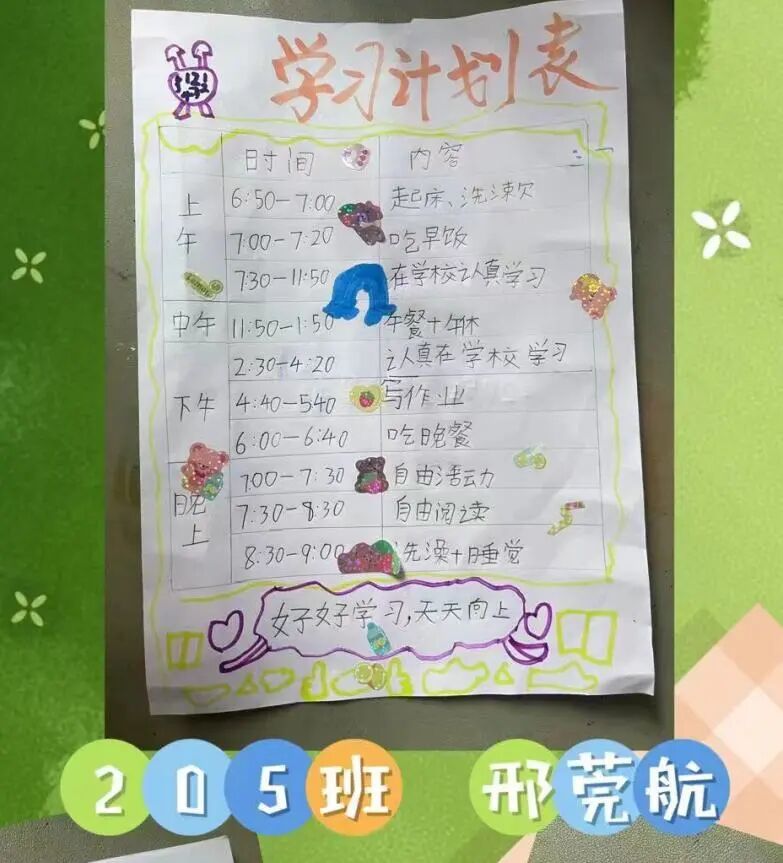 学习计划表
时间 内容
上午 6:50-7:00 起床、洗漱欠
7:00-7:20 吃早饭
7:30-11:50 在学校认真学习
中午 11:50-1:50 午餐+午休
下午 2:30-4:20 认真在学校学习
4:40-540 写作业
6:00-6:40 吃晚餐
晚上 7:00-7:30 自由活动
7:30-8:30 自由阅读
8:30-9:00 洗澡+睡觉
好好学习,天天向上
205班 邢莞航